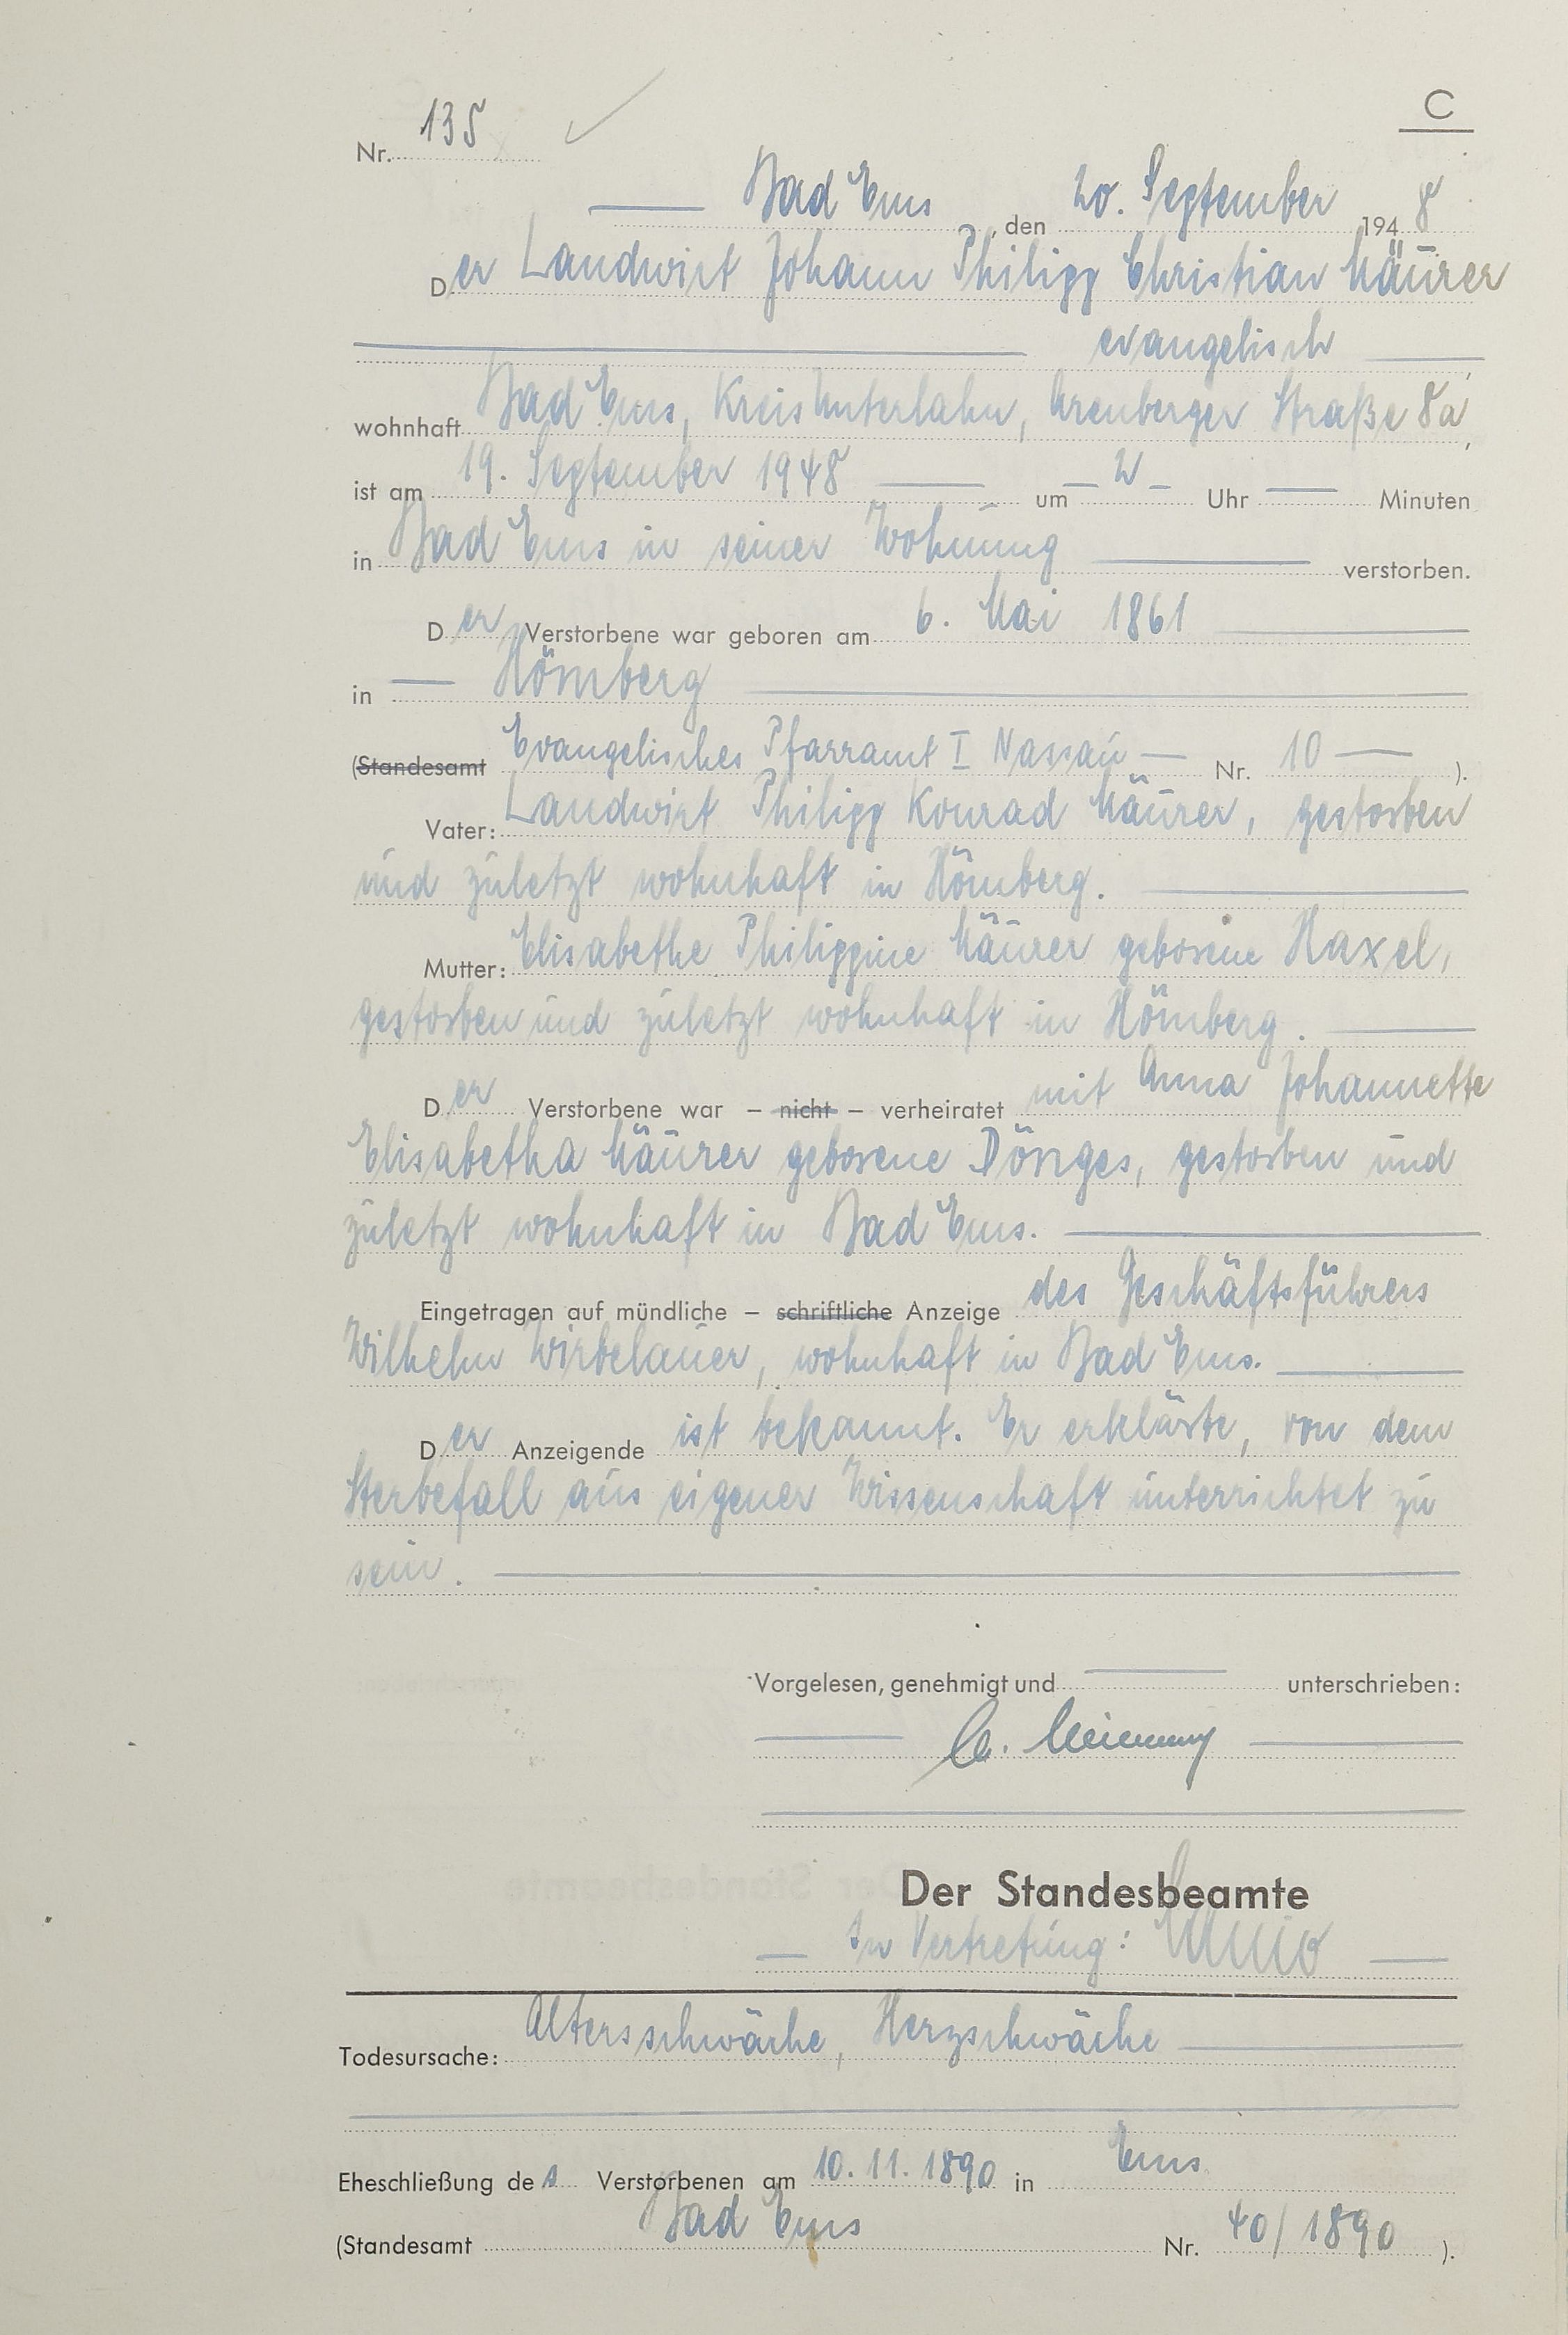 C
Nr. 135
Bad Ems, den 20. September 1948
Der Landwirt Johann Philipp Christian Mäurer
evangelisch,
wohnhaft Bad Ems, Kreis Unterlahn, Arenberger Straße 8a,
ist am 19. September 1948 um 2 Uhr Minuten
in Bad Ems in seiner Wohnung verstorben.
Der Verstorbene war geboren am 6. Mai 1861
in Hömberg
(Standesamt Evangelisches Pfarramt I Nassau Nr. 10 ).
Vater: Landwirt Philipp Konrad Mäurer, gestorben
und zuletzt wohnhaft in Hömberg.
Mutter: Elisabethe Philippine Mäurer geborene Haxel,
gestorben und zuletzt wohnhaft in Hömberg.
Der Verstorbene war – nicht – verheiratet mit Anna Johannette
Elisabetha Mäurer geborene Dönges, gestorben und
zuletzt wohnhaft in Bad Ems.
Eingetragen auf mündliche – schriftliche Anzeige des Geschäftsführers
Wilhelm Wirbelauer, wohnhaft in Bad Ems.
Der Anzeigende ist bekannt. Er erklärte, von dem
Sterbefall aus eigener Wissenschaft unterrichtet zu
sein.
Vorgelesen, genehmigt und unterschrieben:
Der Standesbeamte
In Vertretung:
Todesursache: Altersschwäche, Herzschwäche
Eheschließung des Verstorbenen am 10. 11. 1890 in Ems
(Standesamt Bad Ems Nr. 40/1890 ).